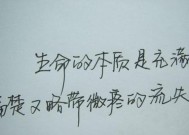 生命的本质是充满
痛楚又略带微疼的流失